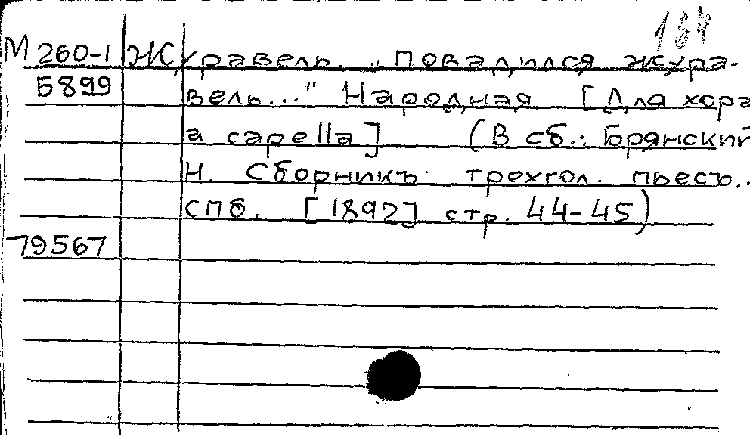 184
М 260-1 Журавель. „Повадился жура-
5899 вель..." Народная [Для хора
a capella] (В сб.: Брянский
Н. Сборникъ трехгол. пьесъ..
спб. [1892] стр. 44-45)
79567